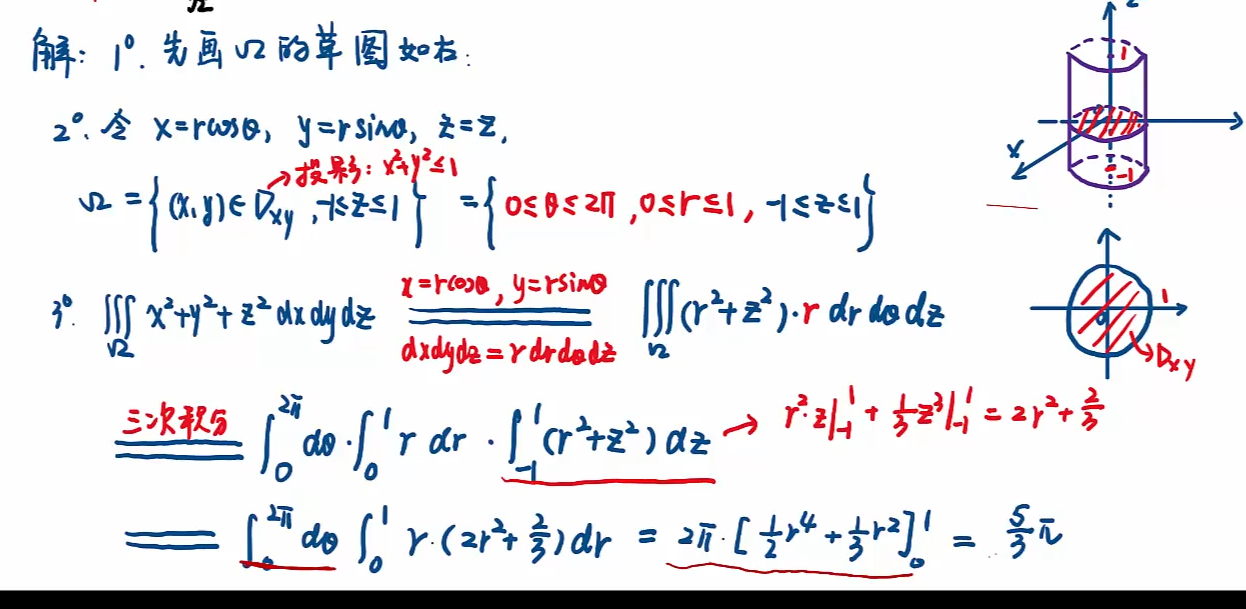 Ω
解: 1°. 先画Ω的草图如右:
2°. 令 x=rcosθ, y=rsinθ, z=z,
→投影: x²+y²≤1
Ω = {(x,y)∈Dxy, -1≤z≤1} = {0≤θ≤2π, 0≤r≤1, -1≤z≤1}
x=rcosθ, y=rsinθ
3°. ∭Ω x²+y²+z² dxdydz ═══ ∭Ω (r²+z²)·r dr dθ dz
dxdydz=rdrdθdz
三次积分
═══ ∫₀^2π dθ·∫₀^1 r dr·∫₋₁^1 (r²+z²) dz → r²·z|₋₁^1 + 1/3 z³|₋₁^1 = 2r²+2/3
═══ ∫₀^2π dθ ∫₀^1 r·(2r²+2/3)dr = 2π·[1/2 r⁴+1/3 r²]₀^1 = 5/3 π
z
1
x
-1
1
Dxy